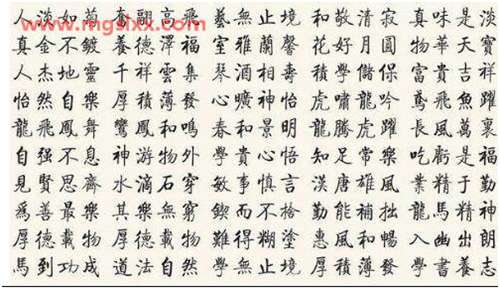 www.mgslxx.com
人淡如菊 奮翮高飛 藝無止境 和敬清寂 真味是淡
真金不鍍 養德澤福 室雅蘭馨 花好月圓 物華天寶
人杰地靈 千祥雲集 琴酒相壽 學儲 富貴吉祥
怡然自樂 厚積薄發 心曠神怡 虎嘯龍吟 鳶飛魚躍
龍飛鳳舞 鸞鳳和鳴 春和景明 龍騰虎躍 長風萬裏
自强不息 神游物外 學貴心悟 知足常樂 吃虧是福
見賢思齊 水滴石穿 敏事慎言 漢唐雄風 業精于勤
爲善最樂 其樂無窮 鍥而不捨 勤能補拙 龍馬精神
厚德載物 厚德載物 難得糊塗 惠風和暢 入幽出朗
馬到功成 道法自然 學無止境 厚積薄發 學書養志